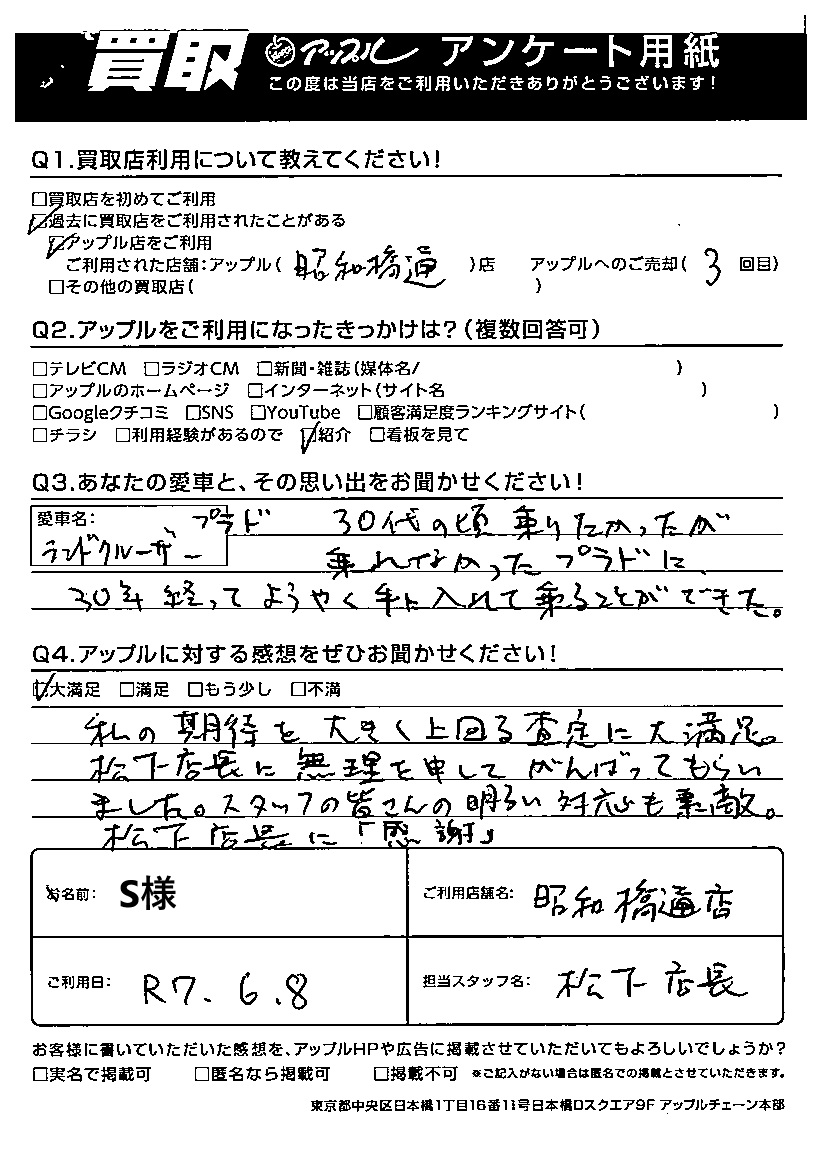 買取 アップル アンケート用紙
この度は当店をご利用いただきありがとうございます!
Q1.買取店利用について教えてください!
□買取店を初めてご利用
☑過去に買取店をご利用されたことがある
☑アップル店をご利用
ご利用された店舗:アップル( 昭和橋通 )店 アップルへのご売却( 3 回目)
□その他の買取店( )
Q2.アップルをご利用になったきっかけは?(複数回答可)
□テレビCM □ラジオCM □新聞・雑誌(媒体名/ )
□アップルのホームページ □インターネット(サイト名 )
□Googleクチコミ □SNS □YouTube □顧客満足度ランキングサイト( )
□チラシ □利用経験があるので ☑紹介 □看板を見て
Q3.あなたの愛車と、その思い出をお聞かせください!
愛車名: プラド 30代の頃乗りたかったが
ランドクルーザー 乗れなかったプラドに、
30年経ってようやく手に入れて乗ることができた。
Q4.アップルに対する感想をぜひお聞かせください!
☑大満足 □満足 □もう少し □不満
私の期待を大きく上回る査定に大満足。
松下店長に無理を申してがんばってもらい
ました。スタッフの皆さんの明るい対応も素敵。
松下店長に「感謝」
お名前: S様 ご利用店舗名: 昭和橋通店
ご利用日: R7.6.8 担当スタッフ名: 松下店長
お客様に書いていただいた感想を、アップルHPや広告に掲載させていただいてもよろしいでしょうか?
□実名で掲載可 □匿名なら掲載可 □掲載不可 ※ご記入がない場合は匿名での掲載とさせていただきます。
東京都中央区日本橋1丁目16番11号日本橋ロスクエア9F アップルチェーン本部